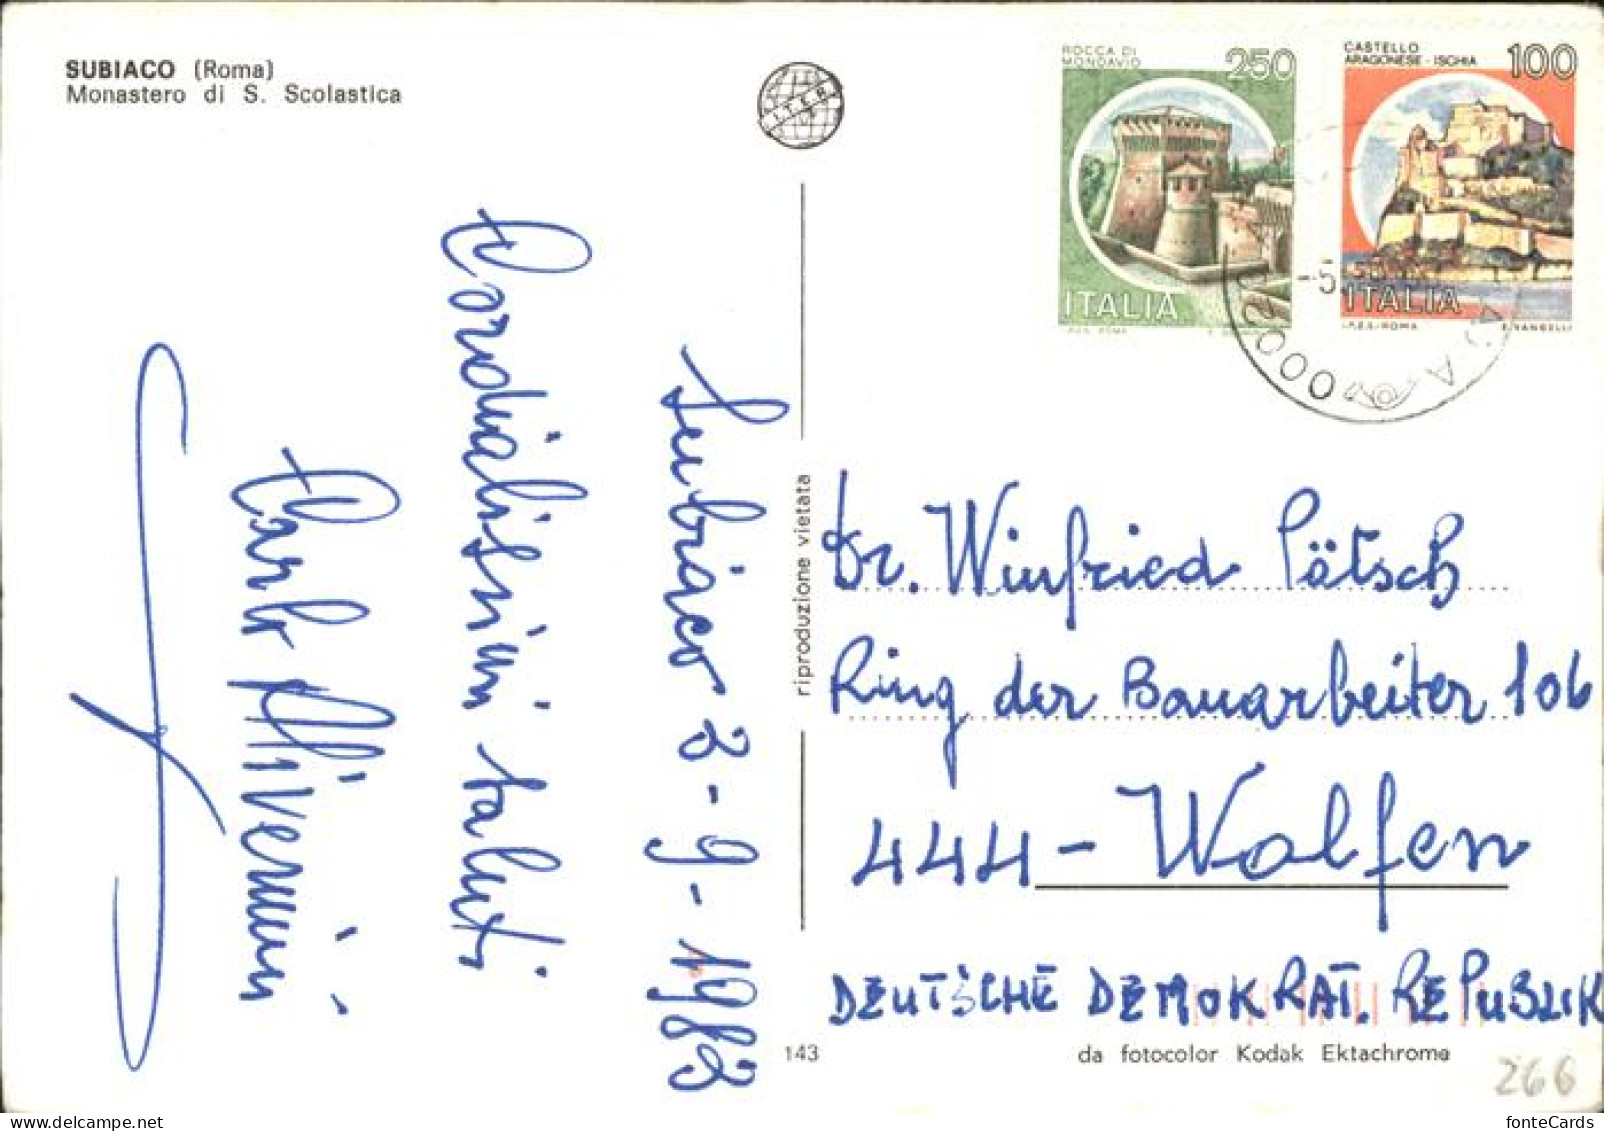 SUBIACO (Roma)
Monastero di S. Scolastica
ROCCA DI
MONDAVIO
250
ITALIA
I.P.Z.S. ROMA
CASTELLO
ARAGONESE - ISCHIA
100
ITALIA
I.P.Z.S. - ROMA
E. VANGELLI
-5
Subiaco 3-9-1983
Cordialissimi saluti
Carlo
riproduzione vietata
Dr. Winfried Pätsch
Ring der Bauarbeiter 106
444 - Wolfen
DEUTSCHE DEMOKRAT. REPUBLIK
143
da fotocolor Kodak Ektachrome
266
fonteCards